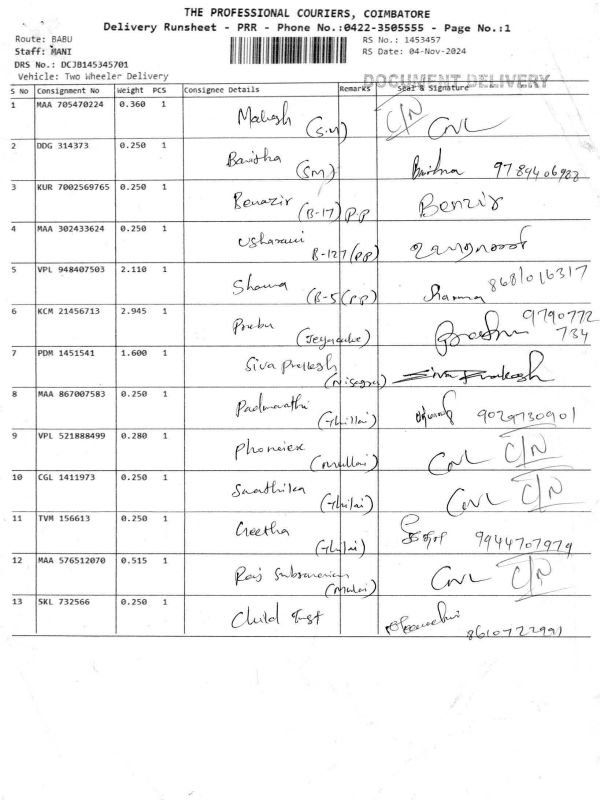 THE PROFESSIONAL COURIERS, COIMBATORE
Delivery Runsheet - PRR - Phone No.:0422-3505555 - Page No.:1
Route: BABU RS No.: 1453457
Staff: MANI RS Date: 04-Nov-2024
DRS No.: DCJB145345701
Vehicle: Two Wheeler Delivery DOCUMENT DELIVERY
S No Consignment No Weight PCS Consignee Details Remarks Seal & Signature
1 MAA 705470224 0.360 1 Mahesh (S.M) C/N CNL
2 DDG 314373 0.250 1 (SM) 9789406988
3 KUR 7002569765 0.250 1 Benazir (B-17) PP Benzir
4 MAA 302433624 0.250 1 Usharani B-127 (PP)
5 VPL 948407503 2.110 1 (B-5 (PP) 8681016317
6 KCM 21456713 2.945 1 Prabu 9790772
734
7 PDM 1451541 1.600 1 Siva Prakash Siva Prakash
8 MAA 867007583 0.250 1 Padmavathi (Thillai) 9029730901
9 VPL 521888499 0.280 1 Phoneiex (Mullai) CNL C/N
10 CGL 1411973 0.250 1 (Thilai) CNL C/N
11 TVM 156613 0.250 1 Geetha (Thilai) கீதா 9944707979
12 MAA 576512070 0.515 1 Raj Subramanian CNL C/N
13 SKL 732566 0.250 1 Child Trust 8610722991